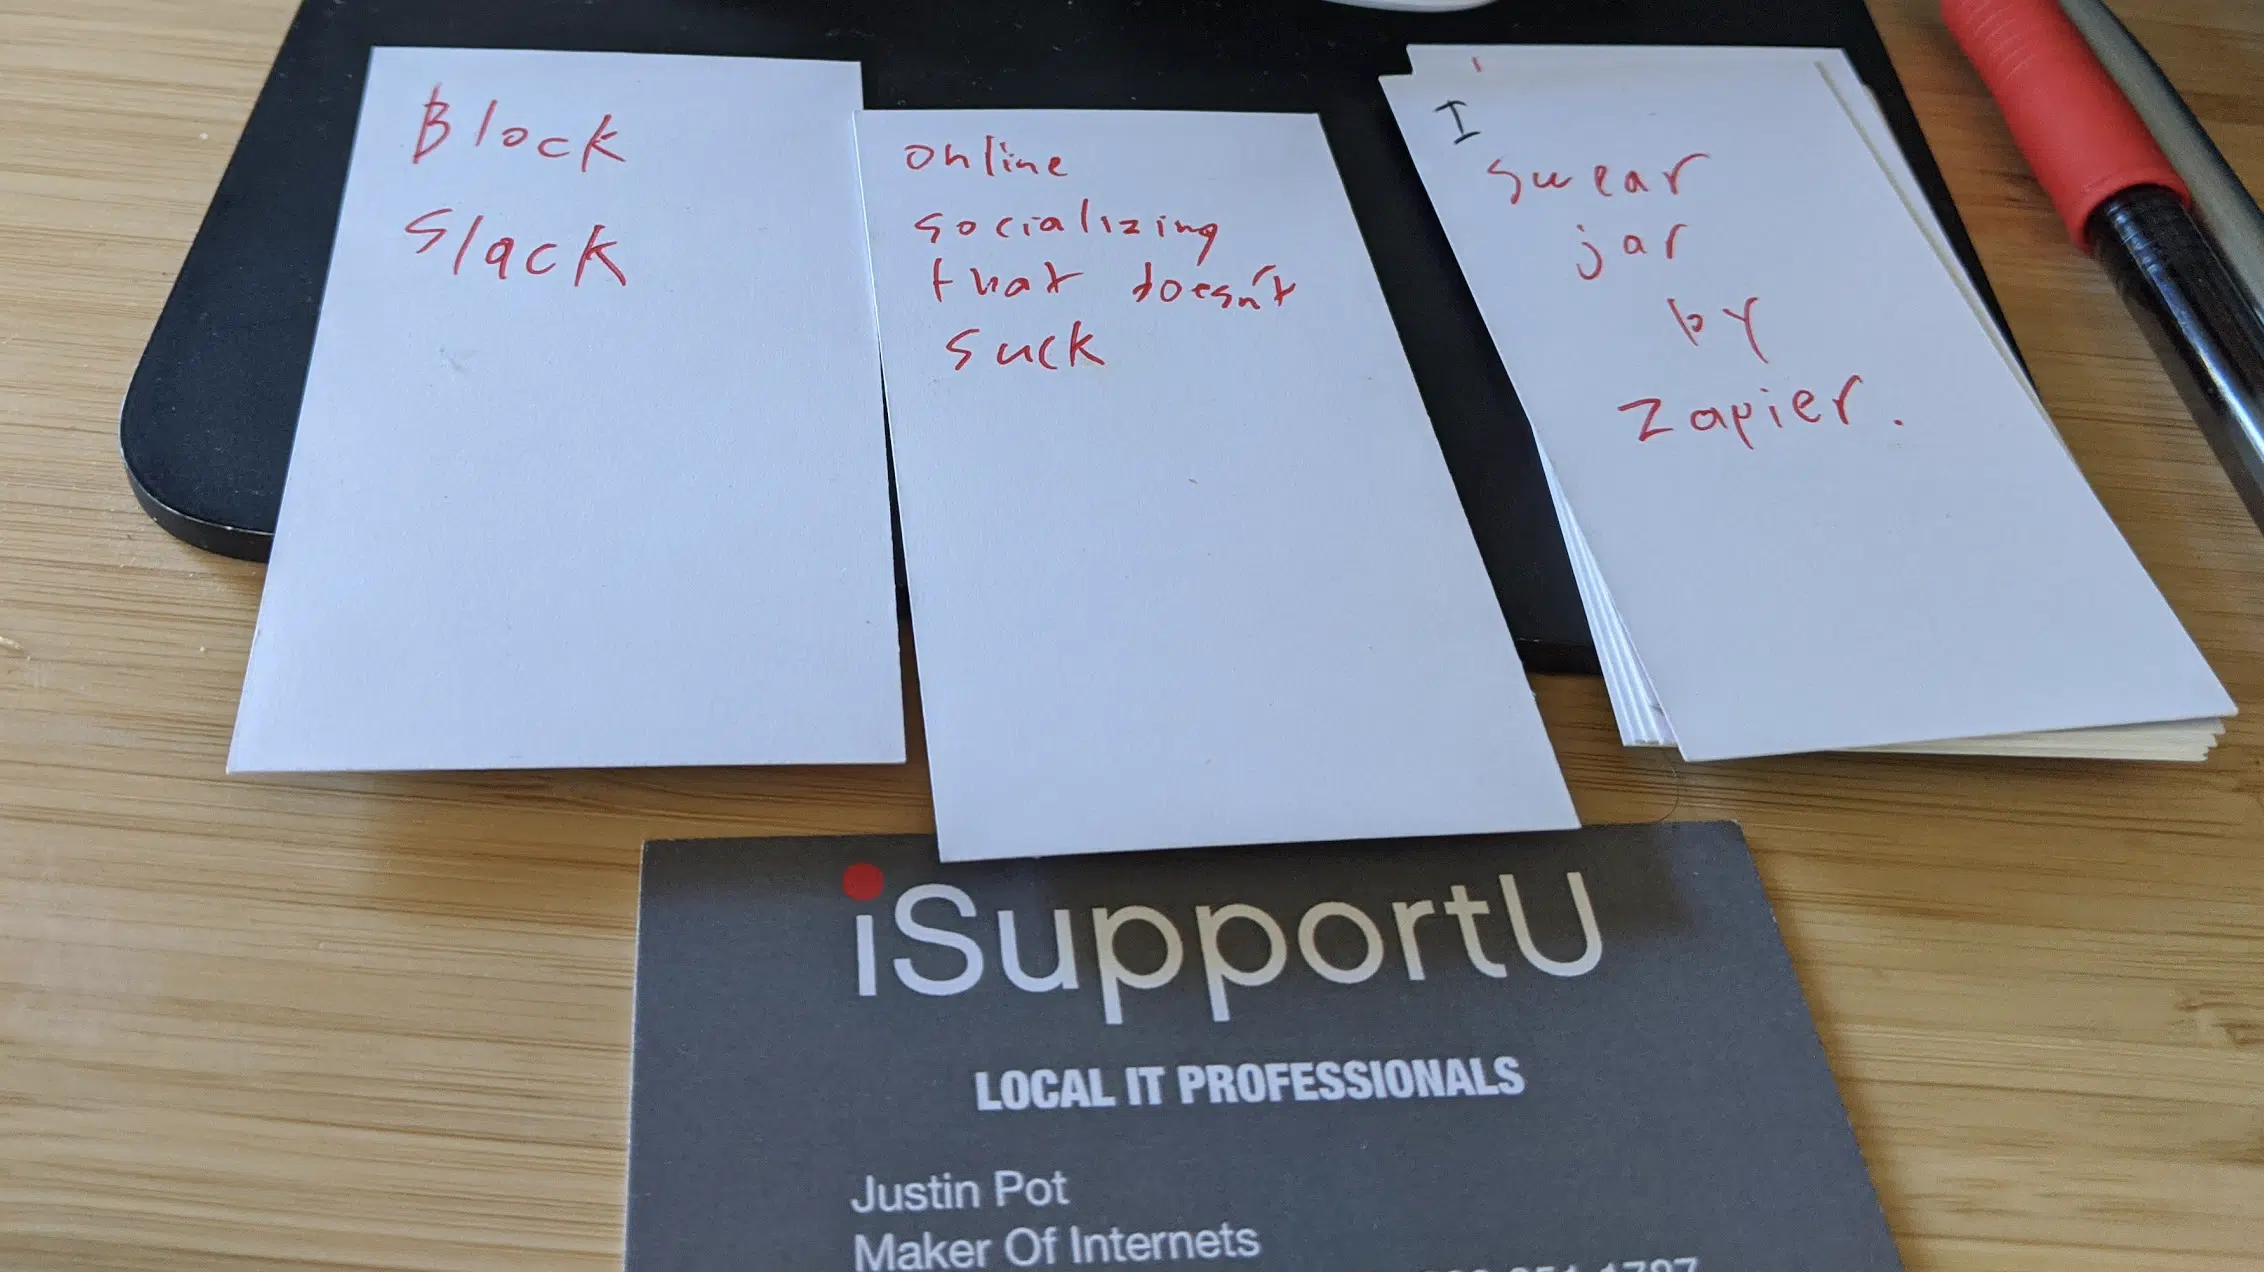 Block
Slack
online
socializing
that doesn't
suck
I
swear
jar
by
Zapier.
iSupportU
LOCAL IT PROFESSIONALS
Justin Pot
Maker Of Internets